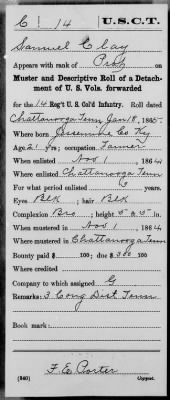 C | 14 | U.S.C.T.
Samuel Clay
Appears with rank of Pvt on
Muster and Descriptive Roll of a Detach-
ment of U. S. Vols. forwarded
for the 14 Reg't U. S. Col'd Infantry. Roll dated
Chattanooga Tenn Jan 18, 1865.
Where born Jessemine Co Ky
Age 21 y'rs; occupation Farmer
When enlisted Nov 1, 1864
Where enlisted Chattanooga Tenn
For what period enlisted 3 years.
Eyes Blk; hair Blk
Complexion Bro; height 5 ft. 5 in.
When mustered in Nov 1, 1864
Where mustered in Chattanooga Tenn
Bounty paid $ 100; due $ 300 100
Where credited
Company to which assigned G
Remarks: 3 Cong Dist Tenn
Book mark:
F. E. Porter
(340) Copyist.